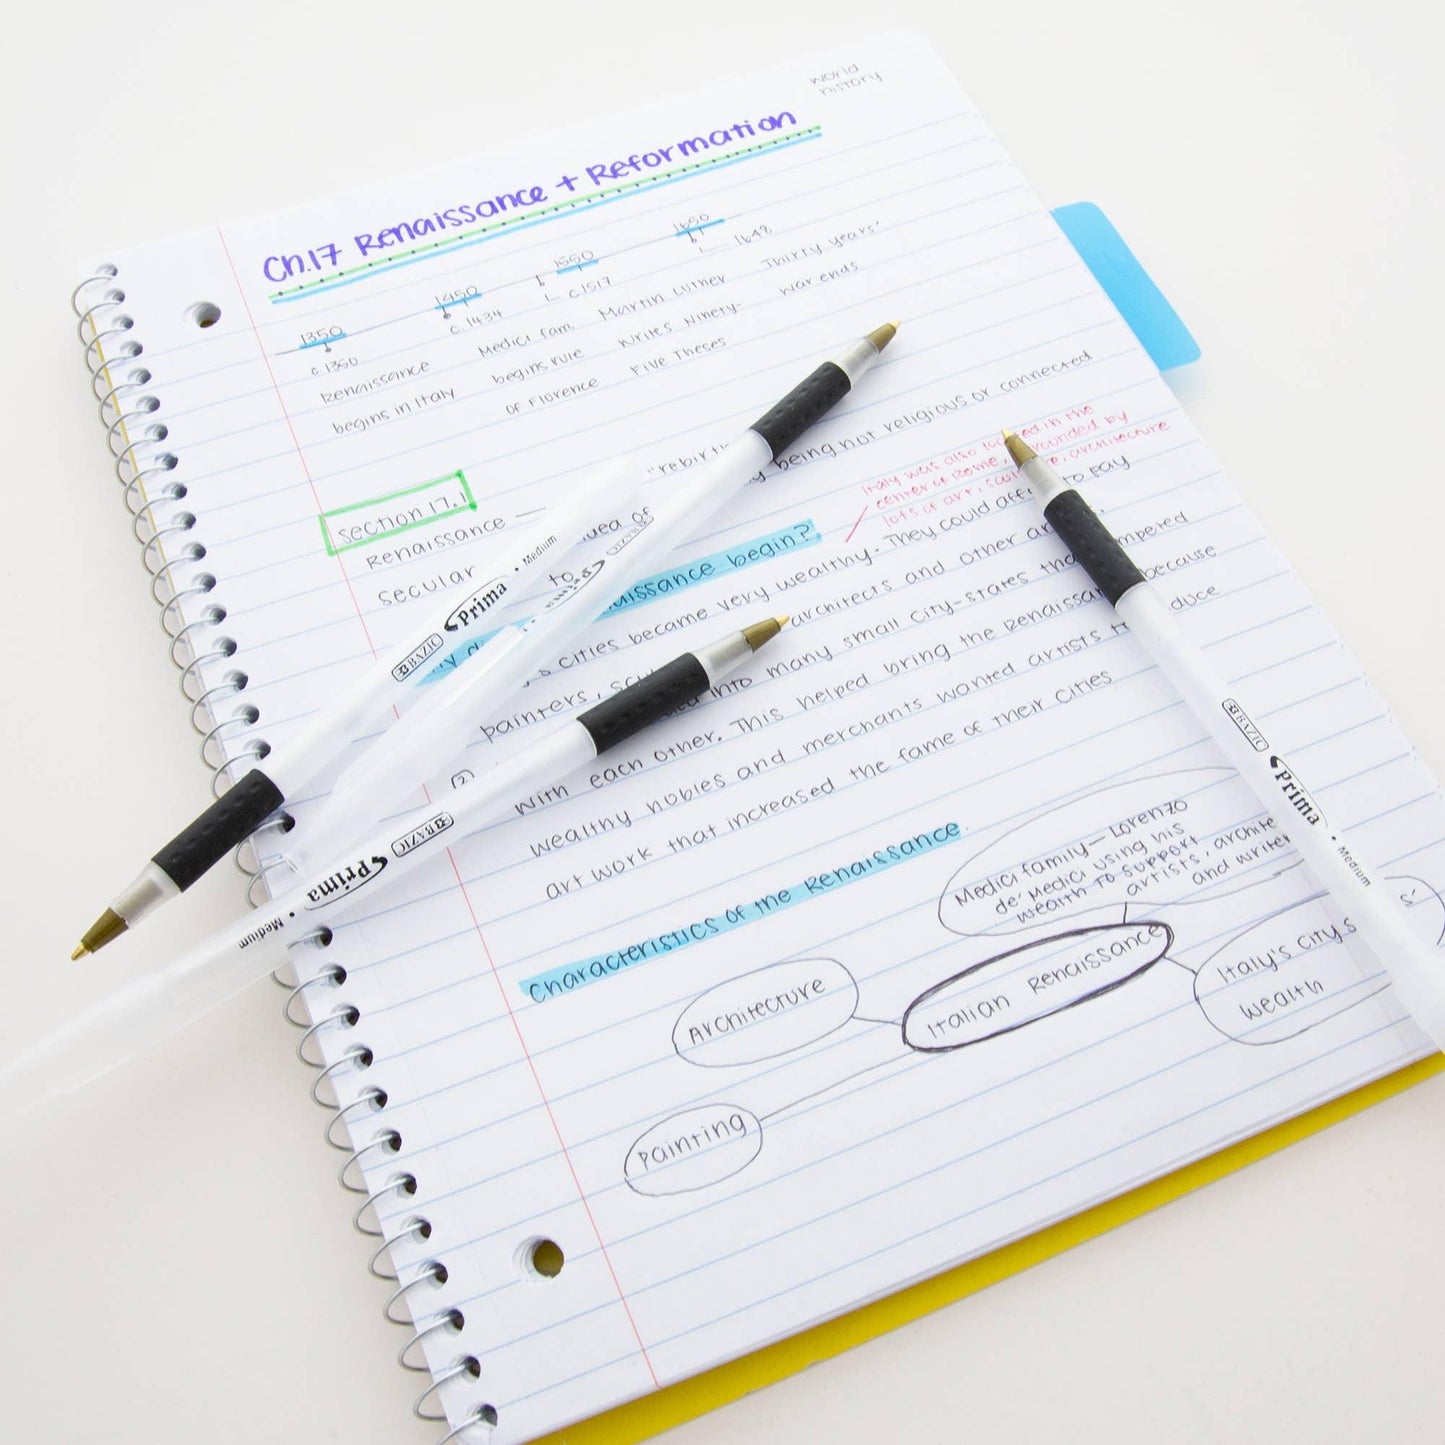 World
history
Ch.17 Renaissance + Reformation
1350 1450 1550 1650
c 1350 c. 1434 c1517 1648
Renaissance Medici fam. Martin Luther Thirty Years'
begins in Italy begins rule writes Ninety- war ends
of Florence Five Theses
section 17.1
Renaissance — "rebirth
secular to being not religious or connected
Italy was also in the
center of Rome, by
lots of art, architecture
begin?
cities became very wealthy. They could to pay
painters, architects and other
(2) into many small city-states
with each other. This helped bring the Renaissance because
wealthy nobles and merchants wanted artists
art work that increased the fame of their cities
Characteristics of the Renaissance
Medici family — Lorenzo
de' Medici using his
wealth to support
artists,
and
Italian Renaissance
Architecture
Italy's city
wealth
Painting
BAZIC Prima • Medium
BAZIC Prima
BAZIC Prima • Medium
BAZIC Prima • Medium